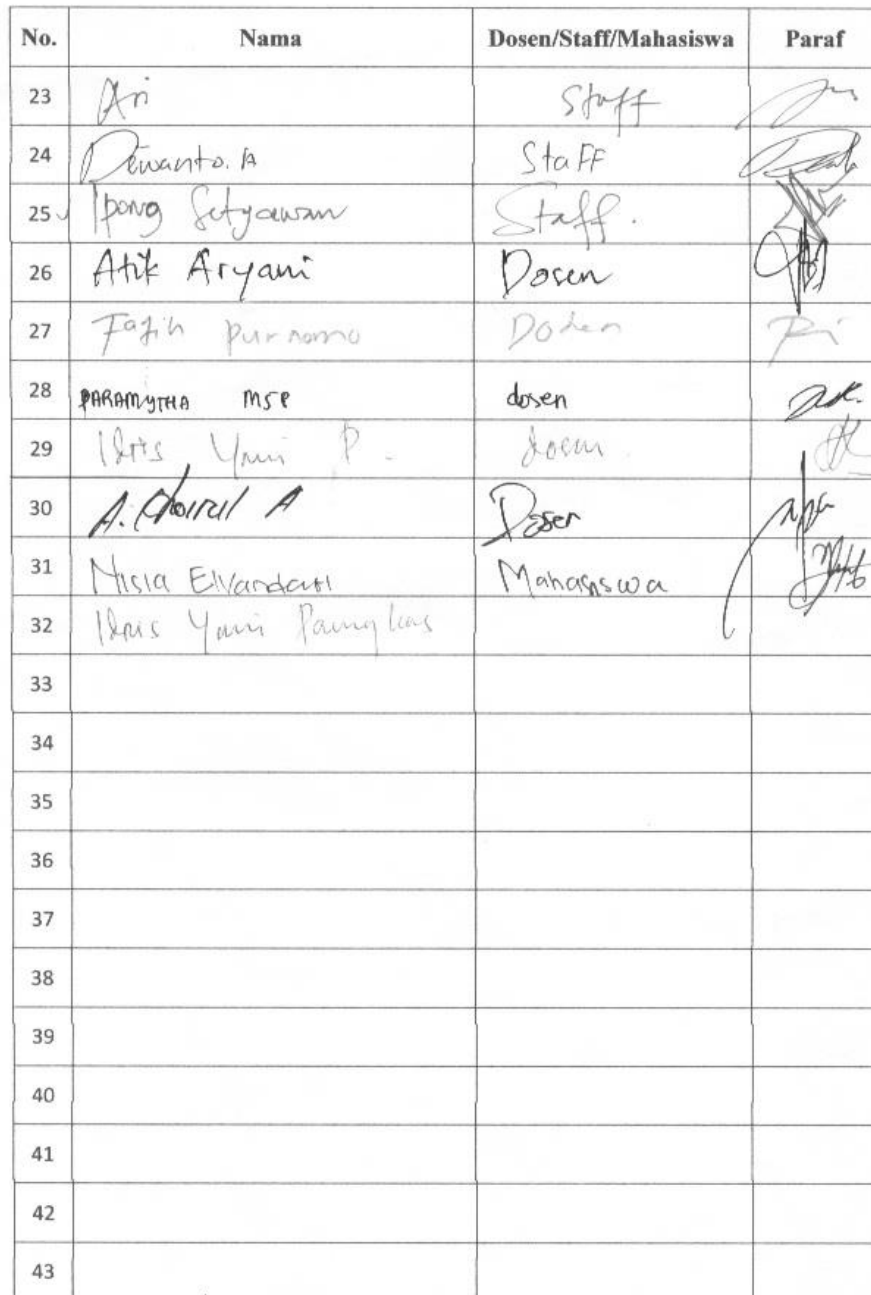 No. Nama Dosen/Staff/Mahasiswa Paraf
23 Ari Staff
24 Dewanto. A Staff
25 Ipong Setyawan Staff.
26 Atik Aryani Dosen
27 Fatih purnomo Dosen
28 PARAMYTHA MSP dosen
29 Idris Yani P. dosen
30 A. Khoirul A Dosen
31 Nisia Elvandari Mahasiswa
32 Idris Yani Pamungkas
33
34
35
36
37
38
39
40
41
42
43